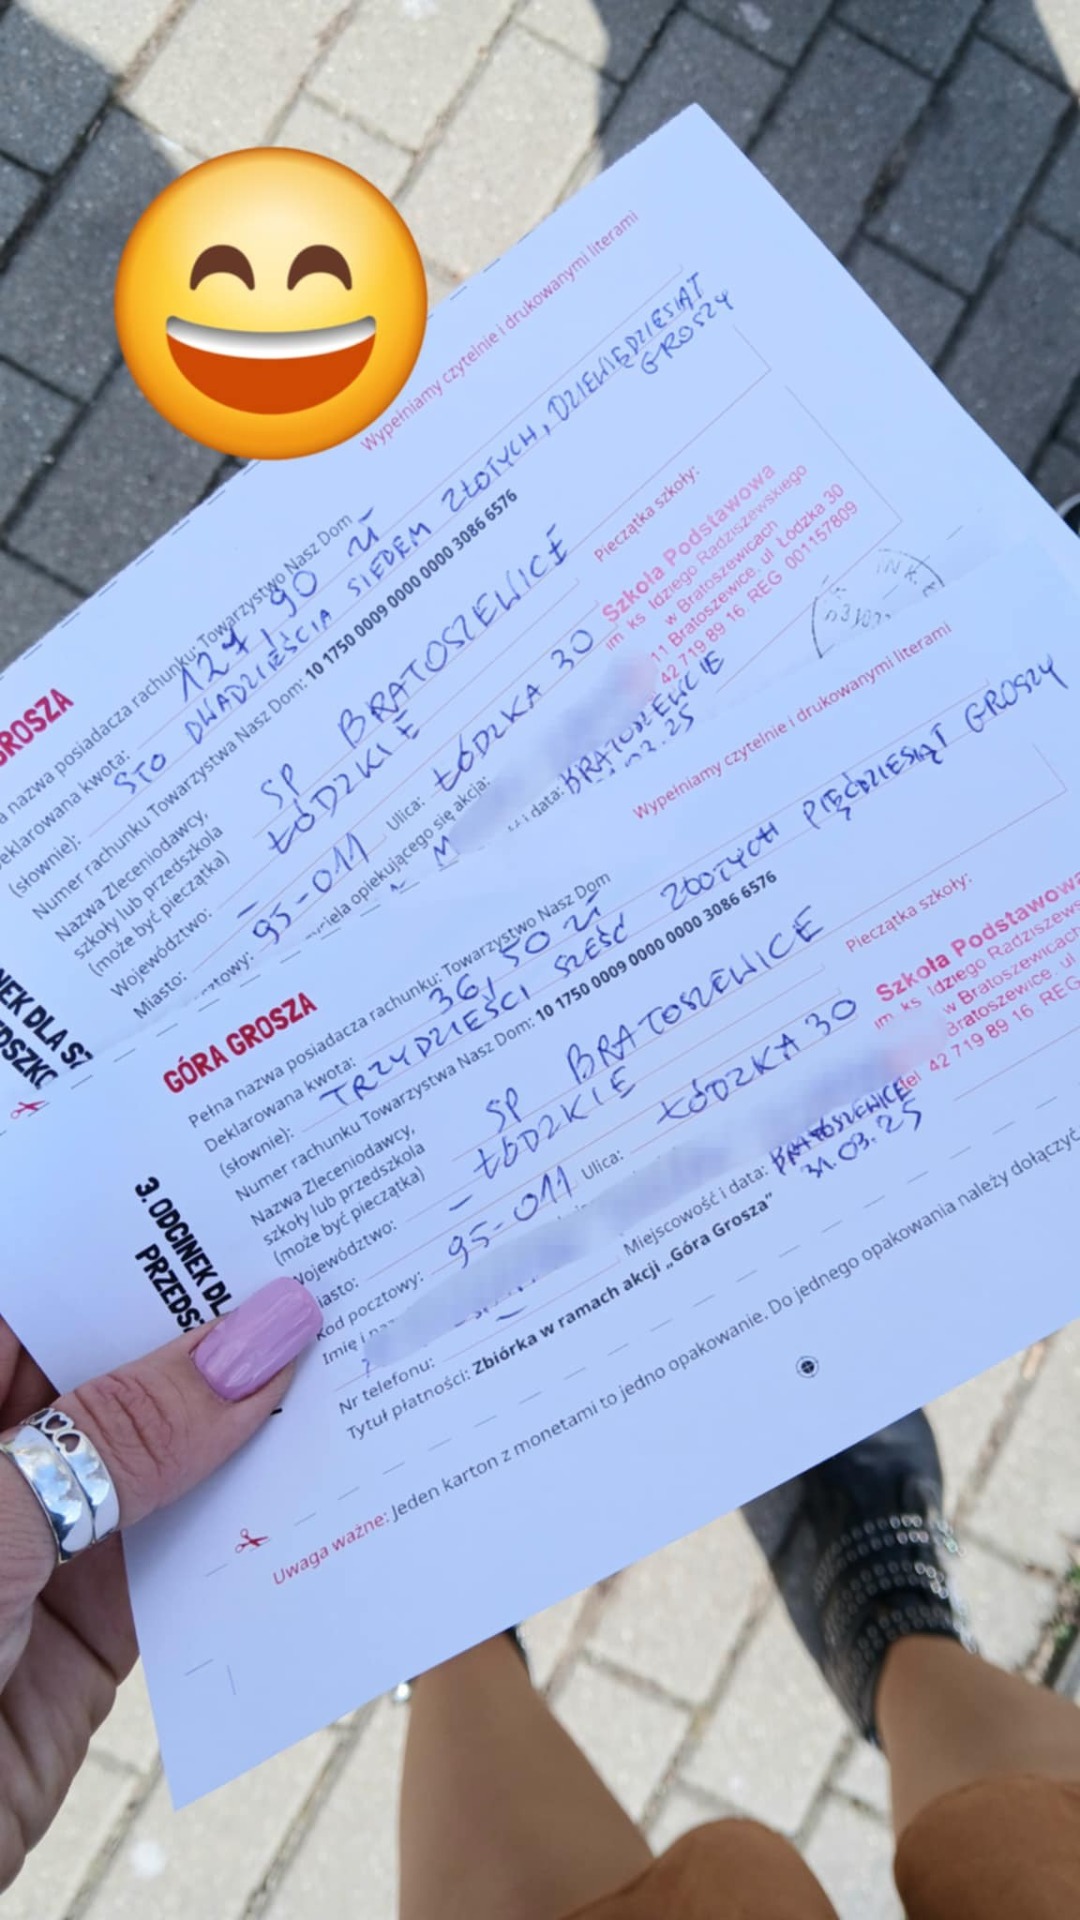 Wypełniamy czytelnie i drukowanymi literami
GROSZA
nazwa posiadacza rachunku: Towarzystwo Nasz Dom
eklarowana kwota: 127,90 zł
(słownie): STO DWADZIEŚCIA SIEDEM ZŁOTYCH, DZIEWIĘDZIESIĄT GROSZY
Numer rachunku Towarzystwa Nasz Dom: 10 1750 0009 0000 0000 3086 6576
Nazwa Zleceniodawcy,
szkoły lub przedszkola
(może być pieczątka)
SP BRATOSZEWICE
Pieczątka szkoły:
Województwo: ŁÓDZKIE
Miasto: –
Ulica: ŁÓDZKA 30
ztowy: 95-011
riela opiekującego się akcją:
M
i data: BRATOSZEWICE
Szkoła Podstawowa
im ks Idziego Radziszewskiego
w Bratoszewicach
11 Bratoszewice. ul Łódzka 30
42 719 89 16 REG 001157809
NEK DLA SZ
EDSZKO
Wypełniamy czytelnie i drukowanymi literami
GÓRA GROSZA
Pełna nazwa posiadacza rachunku: Towarzystwo Nasz Dom
Deklarowana kwota: 36,50 zł
(słownie): TRZYDZIEŚCI SZEŚĆ ZŁOTYCH PIĘĆDZIESIĄT GROSZY
Numer rachunku Towarzystwa Nasz Dom: 10 1750 0009 0000 0000 3086 6576
Nazwa Zleceniodawcy,
szkoły lub przedszkola
(może być pieczątka)
SP BRATOSZEWICE
Pieczątka szkoły:
Województwo: ŁÓDZKIE
iasto: –
Ulica: ŁÓDZKA 30
Kod pocztowy: 95-011
Imię i na
Miejscowość i data: BRATOSZEWICE
31.03.25
Szkoła Podstawowa
im ks Idziego Radziszews
w Bratoszewicach
Bratoszewice. ul
tel 42 719 89 16 REG
Nr telefonu:
Tytuł płatności: Zbiórka w ramach akcji „Góra Grosza”
3. ODCINEK DL
PRZEDS
Uwaga ważne: Jeden karton z monetami to jedno opakowanie. Do jednego opakowania należy dołączyć